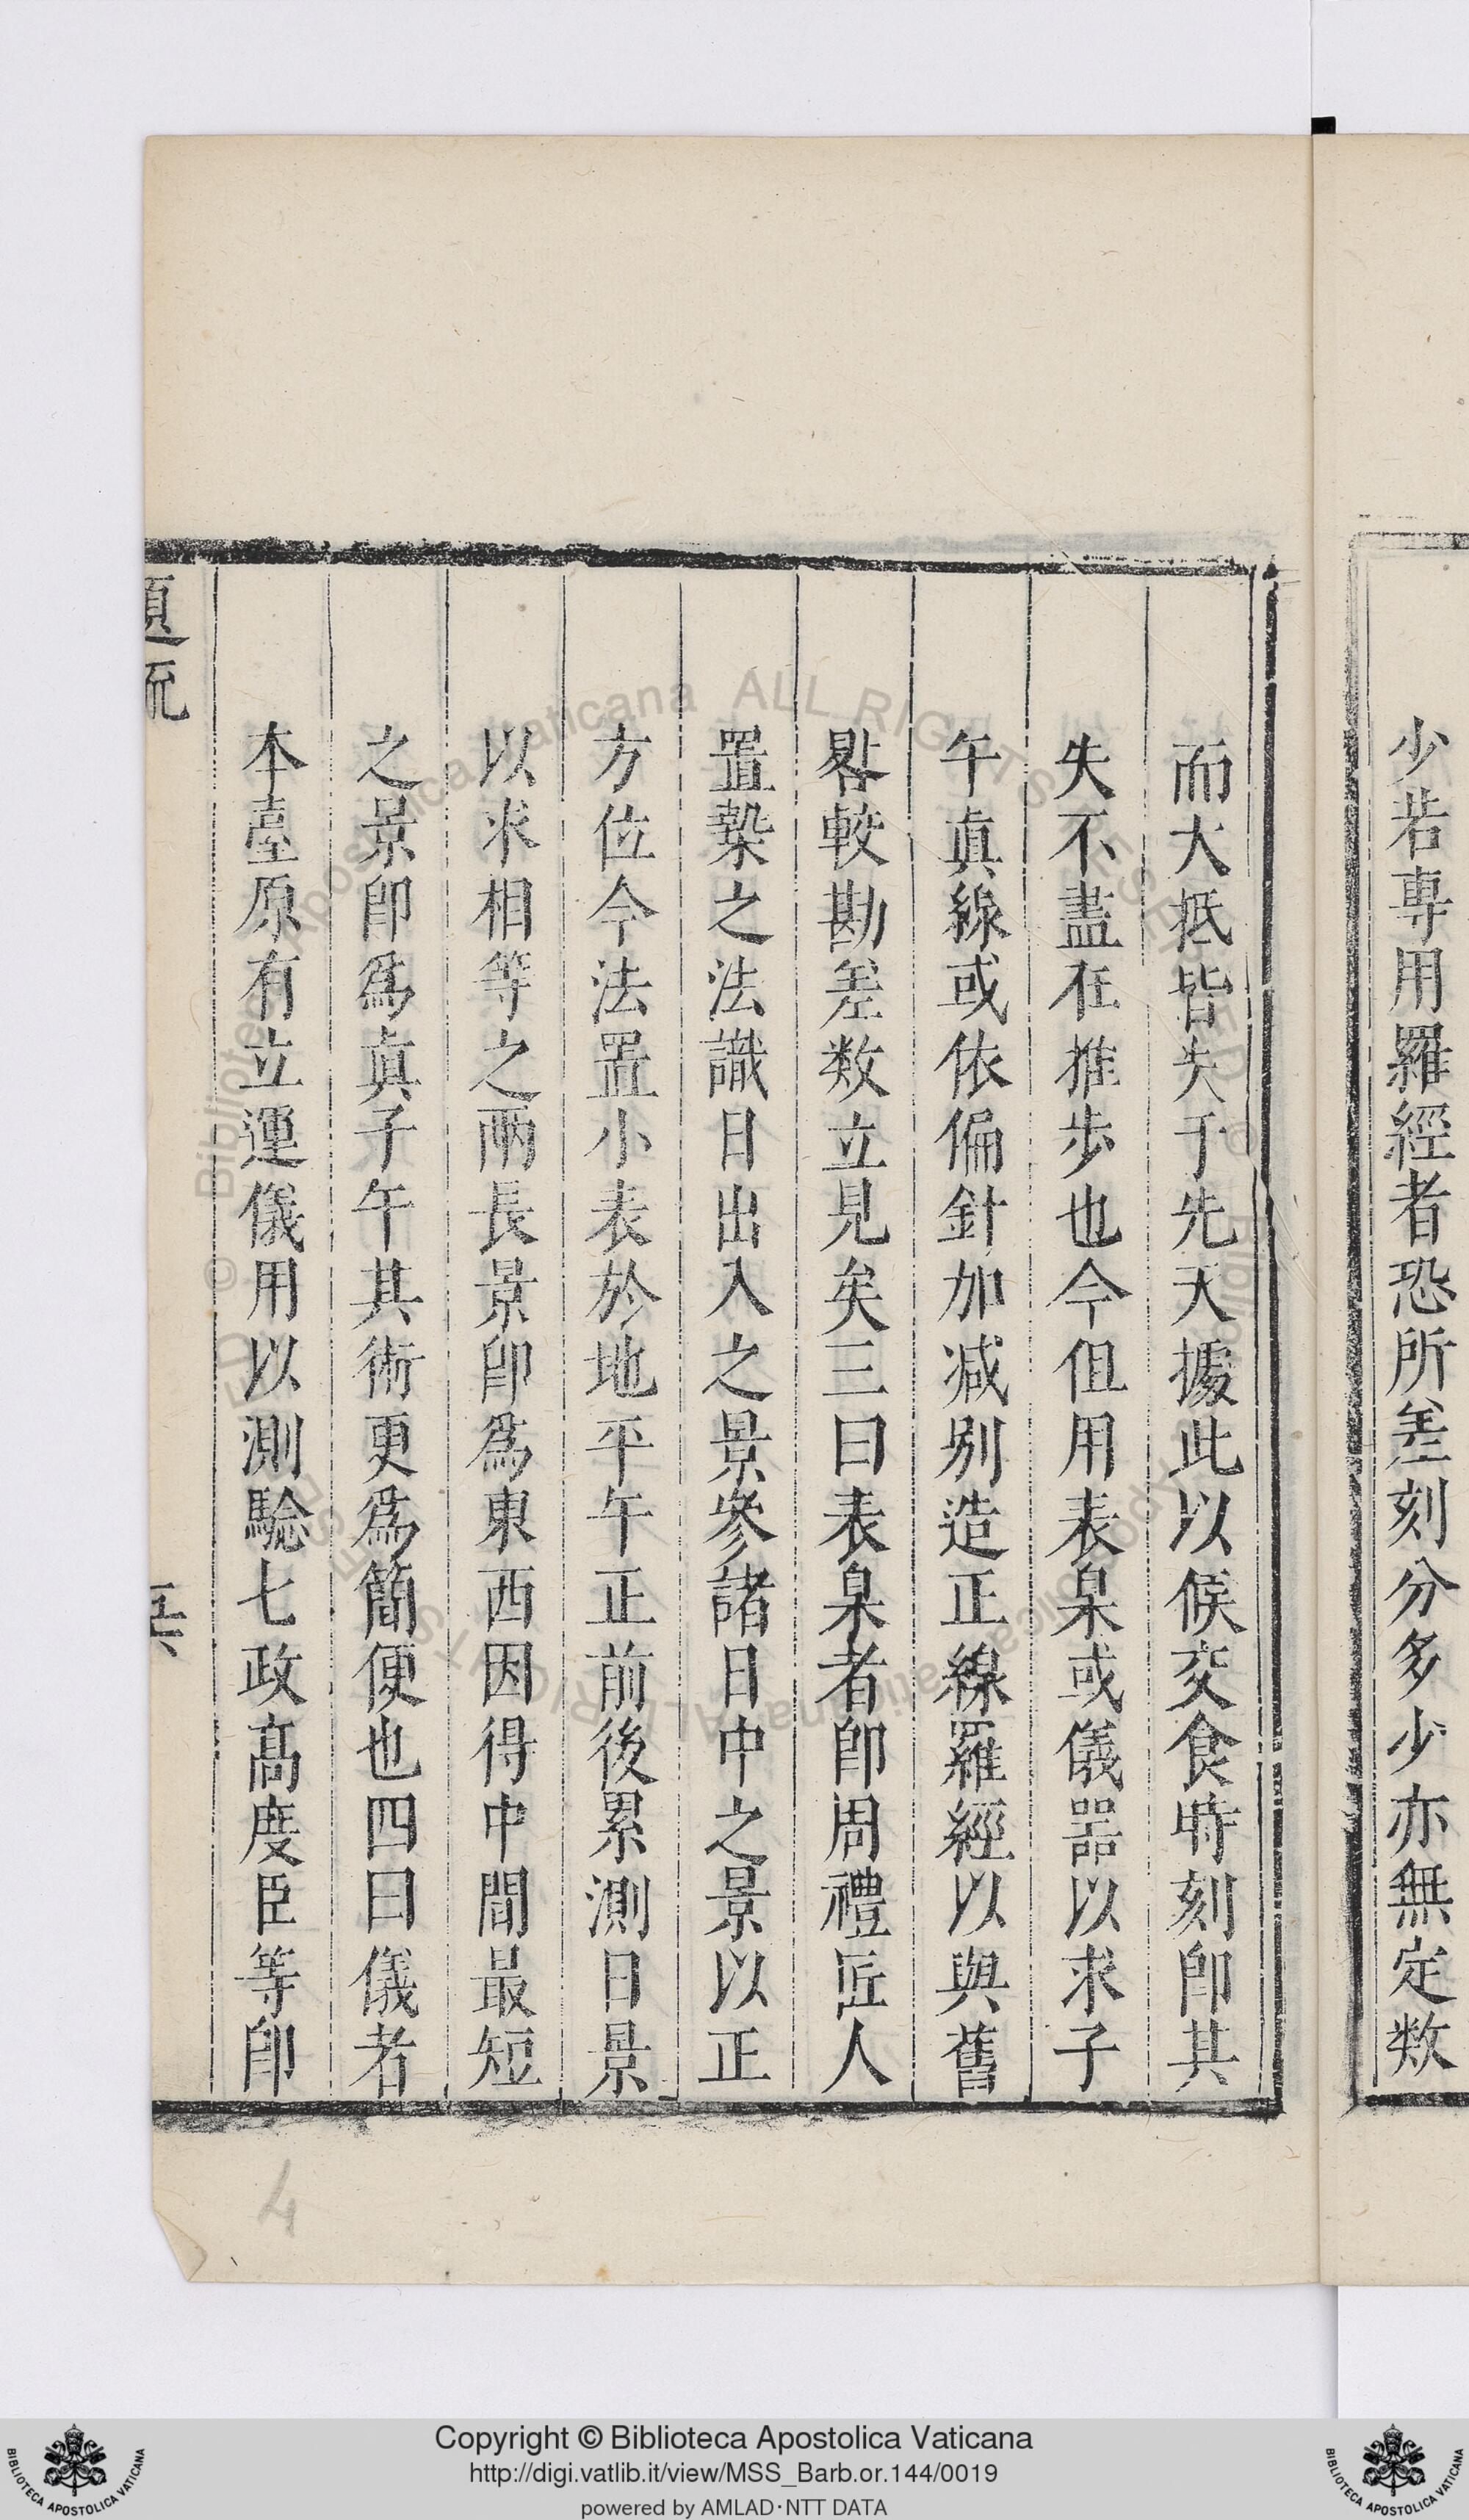 少若專用羅經者恐所差刻分多少亦無定數
而大抵皆失于先天據此以候交食時刻即其
失不盡在推步也今但用表臬或儀器以求子
午真線或依偏針加減別造正線羅經以與舊
晷較勘差数立見矣三曰表臬者即周禮匠人
置槷之法識日出入之景參諸日中之景以正
方位今法置小表於地平午正前後累測日景
以求相等之兩長景即為東西因得中間最短
之景即為真子午其術更為簡便也四曰儀者
本臺原有立運儀用以測驗七政髙度臣等即
Copyright © Biblioteca Apostolica Vaticana
http://digi.vatlib.it/view/MSS_Barb.or.144/0019
powered by AMLAD·NTT DATA
BIBLIOTECA APOSTOLICA VATICANA
BIBLIOTECA APOSTOLICA VATICANA
4